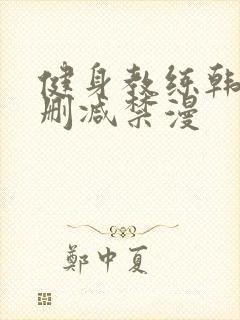 健身教练韩
删减禁漫
郑中夏